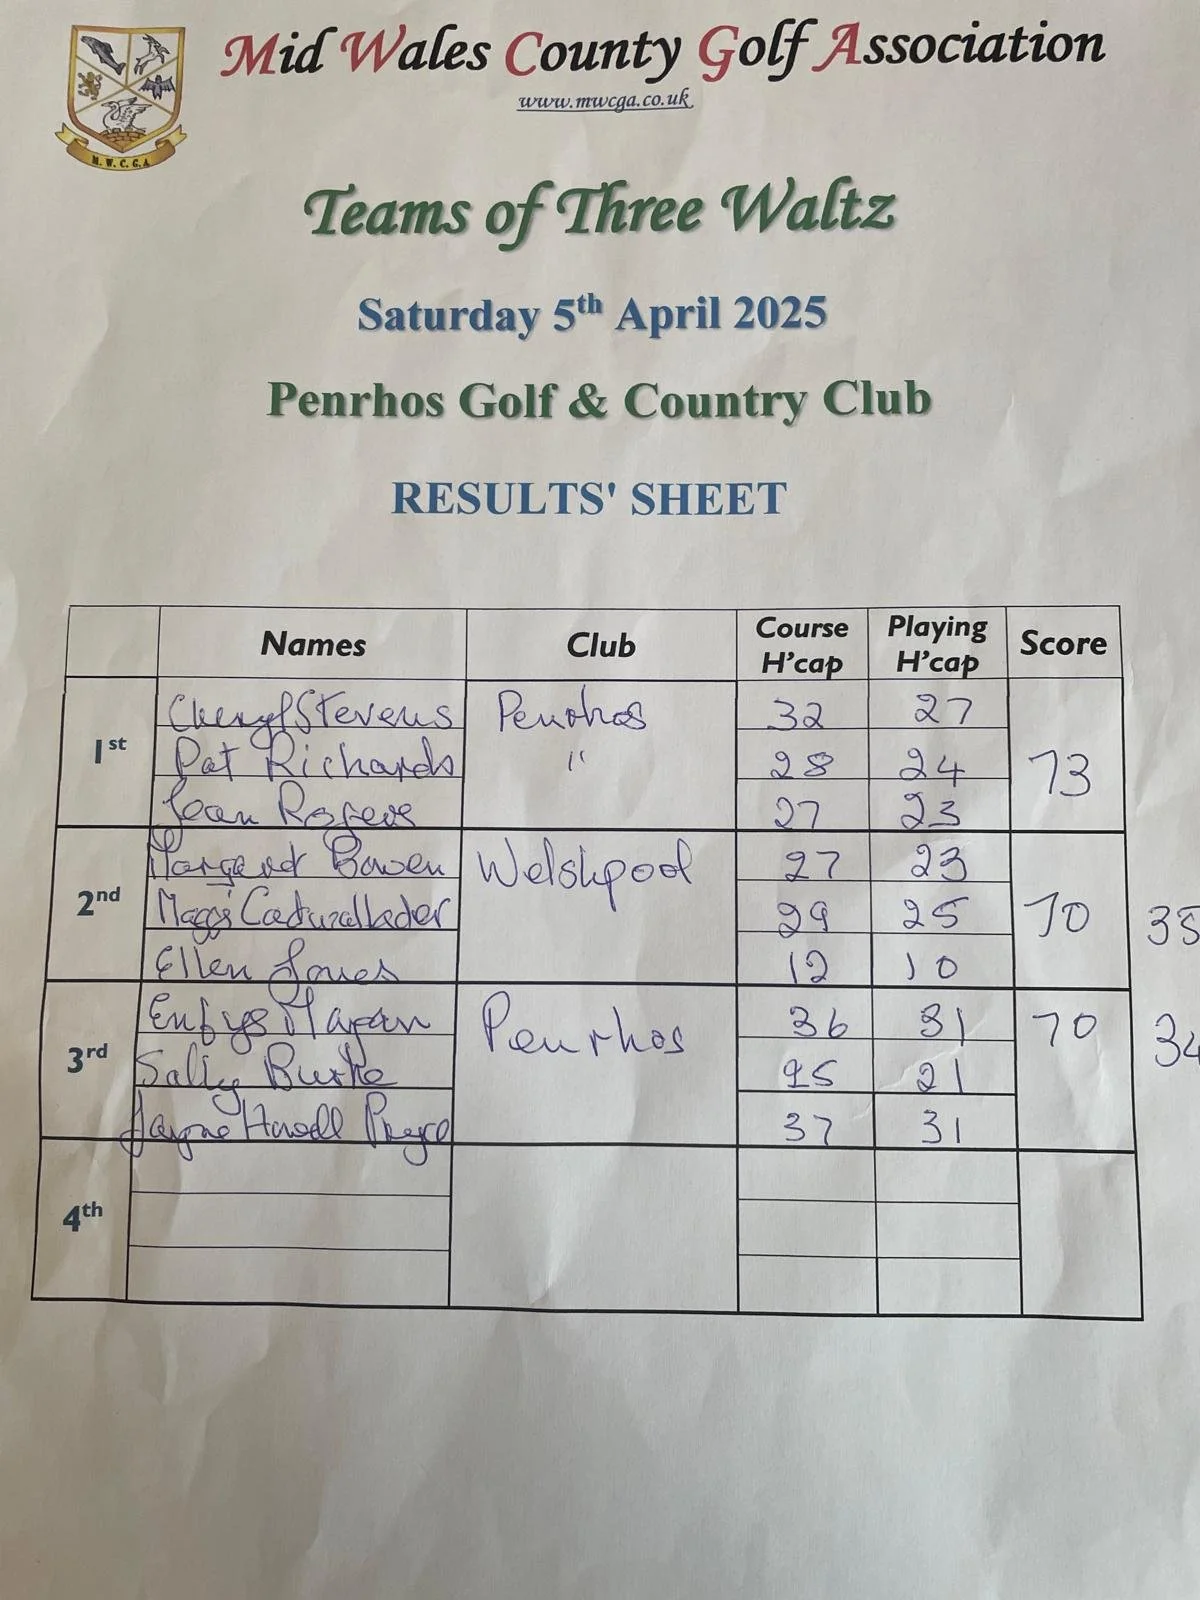 Mid Wales County Golf Association
www.mwcga.co.uk
M. W. C. G. A
Teams of Three Waltz
Saturday 5th April 2025
Penrhos Golf & Country Club
RESULTS' SHEET
Names Club Course H'cap Playing H'cap Score
1st Cheryl Stevens Penrhos 32 27 73
Pat Richards " 28 24
Jean Rogers 27 23
2nd Margaret Bowen Welshpool 27 23 70
Maggi Cadwallader 29 25 35
Ellen Jones 12 10
3rd Enfys Hagan Penrhos 36 31 70 34
Sally Burke 25 21
Jayne Howell Pryce 37 31
4th